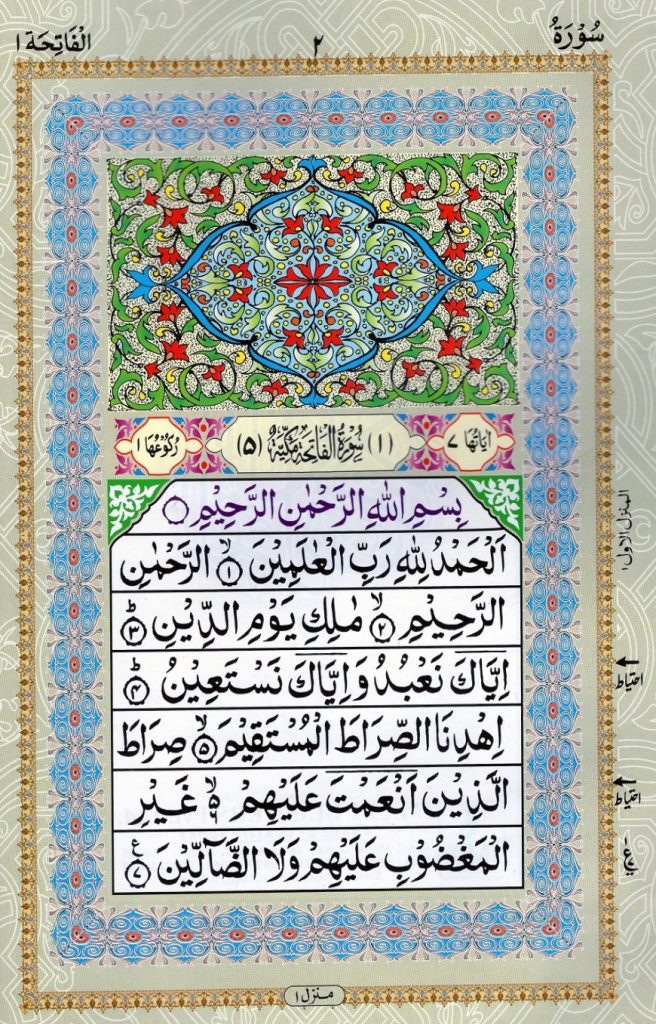 سُوْرَةُ
٢
الْفَاتِحَة ١
اٰيَاتُهَا ٧
(١) سُوْرَةُ الْفَاتِحَةِ مَكِّيَّةٌ (٥)
رُكُوْعُهَا ١
بِسْمِ اللّٰهِ الرَّحْمٰنِ الرَّحِيْمِ
اَلْحَمْدُ لِلّٰهِ رَبِّ الْعٰلَمِيْنَ ۙ﴿١﴾ الرَّحْمٰنِ
الرَّحِيْمِ ۙ﴿٢﴾ مٰلِكِ يَوْمِ الدِّيْنِ ؕ﴿٣﴾
اِيَّاكَ نَعْبُدُ وَاِيَّاكَ نَسْتَعِيْنُ ؕ﴿٤﴾
اِهْدِنَا الصِّرَاطَ الْمُسْتَقِيْمَ ۙ﴿٥﴾ صِرَاطَ
الَّذِيْنَ اَنْعَمْتَ عَلَيْهِمْ ۙ﴿٦﴾ غَيْرِ
الْمَغْضُوْبِ عَلَيْهِمْ وَلَا الضَّآلِّيْنَ ﴿٧﴾ ع
المنزل الاول ١
احتیاط
احتیاط
منزل ١